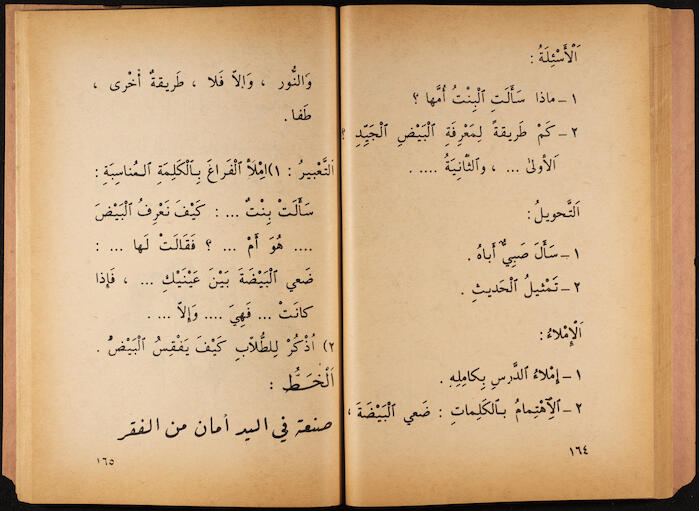 اَلْأَسْئِلَةُ :
١ ـ ماذا سَأَلَتِ ٱلْبِنْتُ أُمَّها ؟
٢ ـ كَمْ طَريقةً لِمَعْرِفَةِ ٱلْبَيْضِ ٱلْجَيِّدِ ؟
اَلأولىٰ ... ، وٱلثّانِيَةُ .... .
اَلتَّحويلُ :
١ ـ سَأَلَ صَبِيٌّ أَباهُ .
٢ ـ تَمْثيلُ ٱلْحَديثِ .
اَلْإِمْلاءُ :
١ ـ إِمْلاءُ ٱلدَّرسِ بِكامِلِهِ .
٢ ـ اَلِٱهْتِمامُ بِٱلْكَلِماتِ : ضَعي ٱلْبَيْضَةَ ،
١٦٤
وَٱلنُّور ، وَإِلاّ فَلا ، طَريقةٌ أُخْرى ،
طَفا .
اَلتَّعْبيرُ : ١) اِمْلَأِ ٱلْفَراغَ بِٱلْكَلِمَةِ ٱلْمُناسِبَةِ :
سَأَلَتْ بِنْتٌ ... : كَيْفَ نَعْرِفُ ٱلْبَيْضَ
.... هُوَ أَمْ ... ؟ فَقَالَتْ لَها ... :
ضَعي ٱلْبَيْضَةَ بَيْنَ عَيْنَيْكِ ... ، فَإِذا
كانَتْ ... فَهِيَ .... وَإِلاّ ... .
٢) اُذْكُرْ لِلطُّلاّبِ كَيْفَ يَفْقِسُ ٱلْبَيْضُ .
اَلْخَطُّ :
صنعة في اليد أمان من الفقر
١٦٥